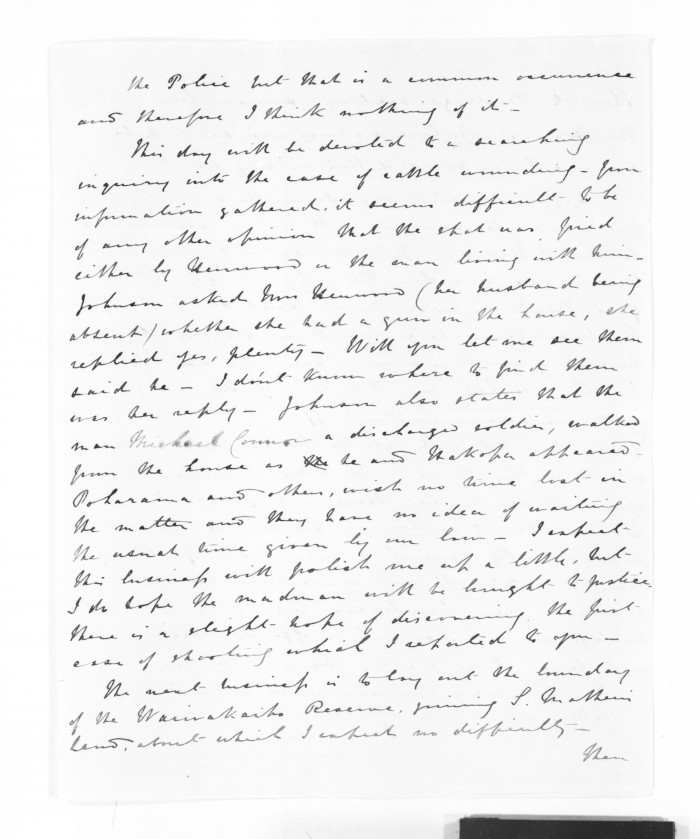 the Police but that is a common occurrence
and therefore I think nothing of it -
This day will be devoted to a searching
inquiry into the case of cattle wounding - from
information gathered, it seems difficult to be
of any other opinion that the shot was fired
either by Henwood or the man living with him -
Johnson asked Mrs Henwood (her husband being
absent) whether she had a gun in the house, she
replied yes, plenty - Will you let me see them
said he - I don't know where to find them
was her reply - Johnson also states that the
man Michael Connor a discharged soldier, walked
from the house as he and Thakopa appeared -
Poharama and others, wish no time lost in
the matter and they have no idea of waiting
the usual time given by our law - I expect
this business will polish me up a little, but
I do hope the madman will be brought to justice
there is a slight hope of discovering the first
case of shooting which I reported to you -
The next business is to lay out the boundary
of the Waiwakaiho Reserve, joining S.
land, about which I expect no difficulty -
Then